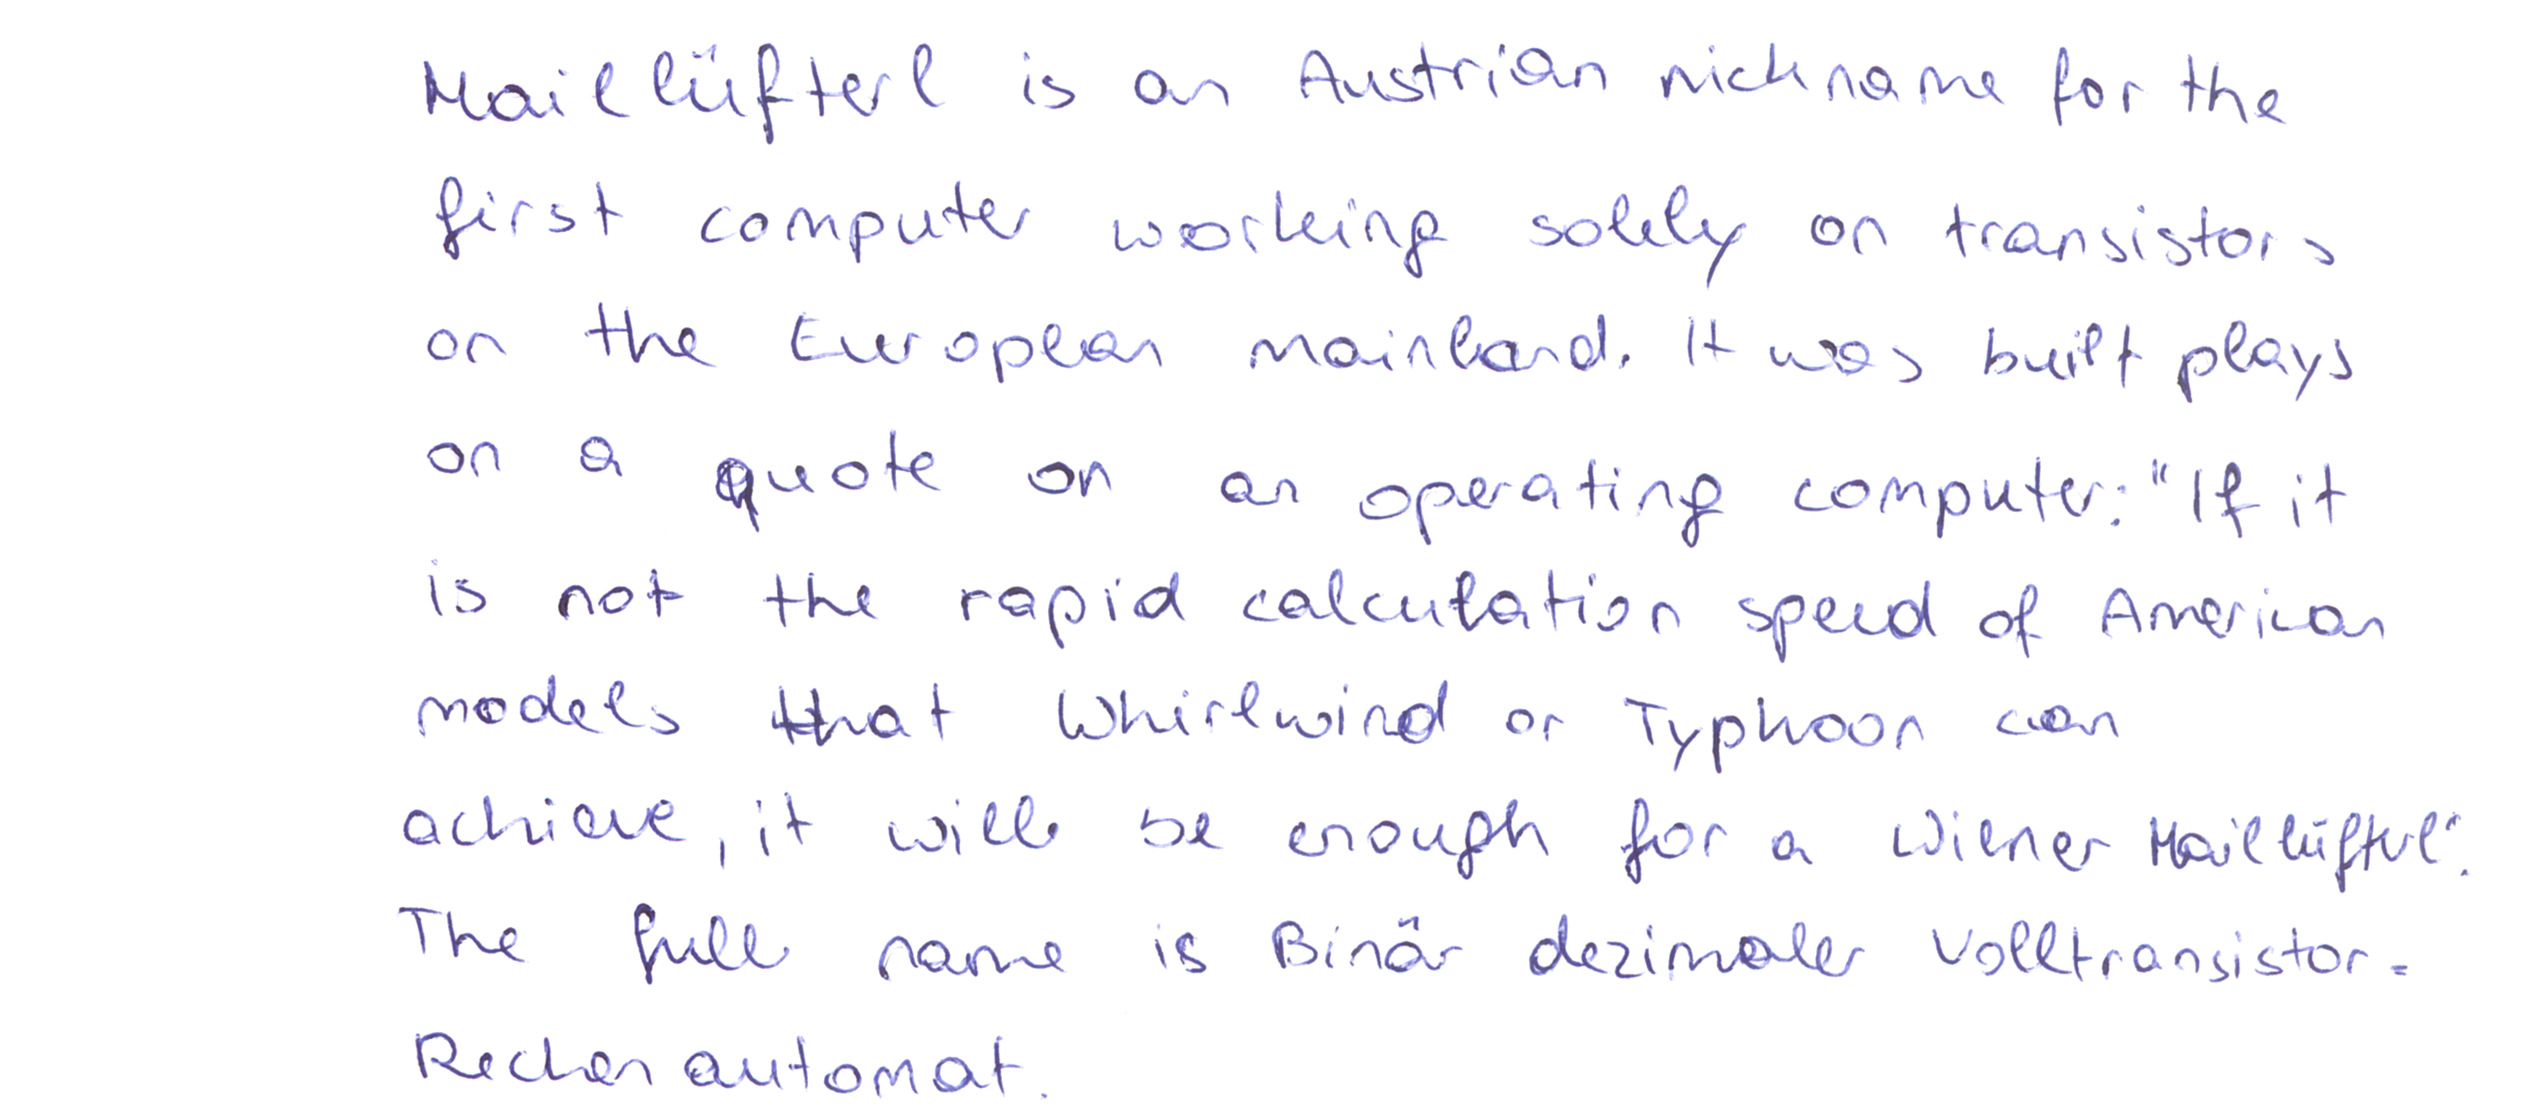 Mailüfterl is an Austrian nickname for the
first computer working solely on transistors
on the European mainland. It was built plays
on a quote on an operating computer: "If it
is not the rapid calculation speed of American
models that Whirlwind or Typhoon can
achieve, it will be enough for a Wiener Mailüfterl".
The full name is Binär dezimaler Volltransistor-
Rechenautomat.